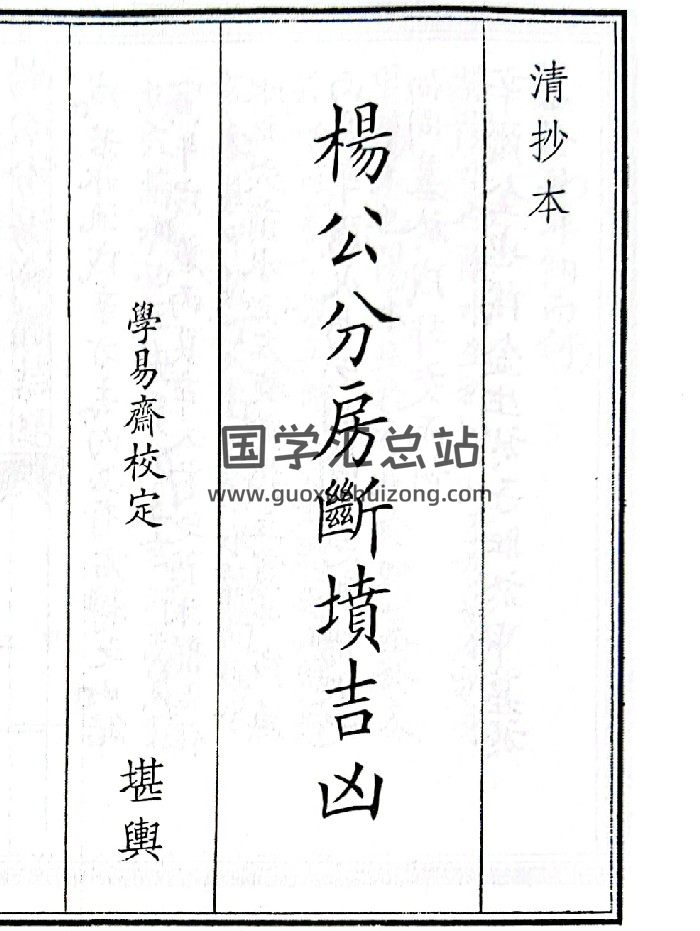 清抄本
楊公分房斷墳吉凶
學易齋校定
堪輿
国学汇总站
www.guoxuehuizong.com